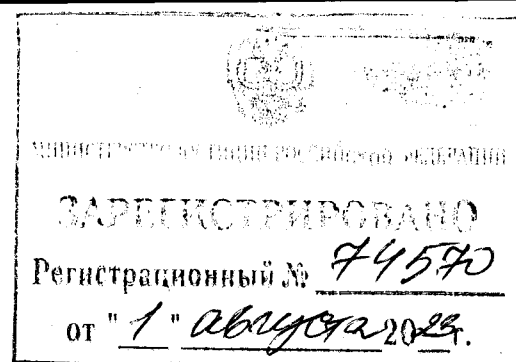 МИНИСТЕРСТВО ЮСТИЦИИ РОССИЙСКОЙ ФЕДЕРАЦИИ
ЗАРЕГИСТРИРОВАНО
Регистрационный № 74570
от "1" августа 2023г.